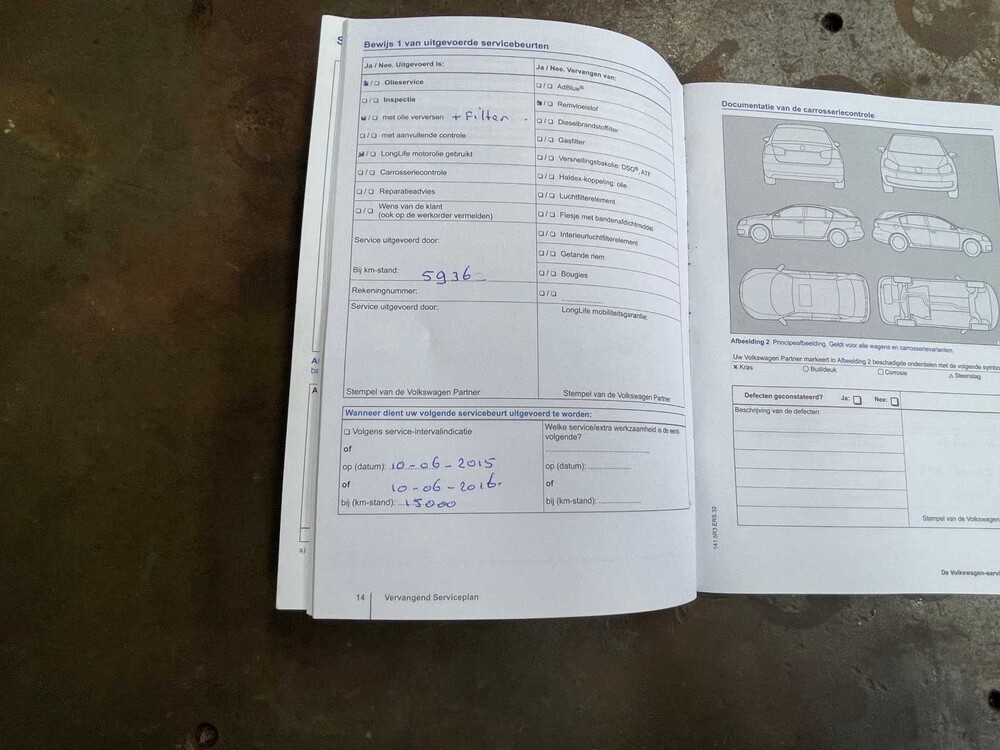 Bewijs 1 van uitgevoerde servicebeurten
Ja / Nee. Uitgevoerd is:
/ ❑ Olieservice
❑ / ❑ Inspectie
/ ❑ met olie verversen + Filter
❑ / ❑ met aanvullende controle
/ ❑ LongLife motorolie gebruikt
❑ / ❑ Carrosseriecontrole
❑ / ❑ Reparatieadvies
❑ / ❑ Wens van de klant
(ook op de werkorder vermelden)
Service uitgevoerd door:
Bij km-stand: 5936
Rekeningnummer:
Service uitgevoerd door:
Stempel van de Volkswagen Partner
Ja / Nee. Vervangen van:
❑ / ❑ AdBlue®
/ ❑ Remvloeistof
❑ / ❑ Dieselbrandstoffilter
❑ / ❑ Gasfilter
❑ / ❑ Versnellingsbakolie: DSG®, ATF
❑ / ❑ Haldex-koppeling: olie
❑ / ❑ Luchtfilterelement
❑ / ❑ Flesje met bandenafdichtmiddel
❑ / ❑ Interieurluchtfilterelement
❑ / ❑ Getande riem
❑ / ❑ Bougies
❑ / ❑
LongLife mobiliteitsgarantie:
Stempel van de Volkswagen Partner
Wanneer dient uw volgende servicebeurt uitgevoerd te worden:
❑ Volgens service-intervalindicatie
of
op (datum): 10-06-2015
of 10-06-2016.
bij (km-stand): 15000
Welke service/extra werkzaamheid is de eerst-
volgende?
op (datum):
of
bij (km-stand):
14
Vervangend Serviceplan
a)
Documentatie van de carrosseriecontrole
Afbeelding 2 Principeafbeelding. Geldt voor alle wagens en carrosserievarianten.
Uw Volkswagen Partner markeert in Afbeelding 2 beschadigde onderdelen met de volgende symbo
✕ Kras
○ Buil/deuk
□ Corrosie
△ Steenslag
Defecten geconstateerd? Ja: ❑ Nee: ❑
Beschrijving van de defecten:
Stempel van de Volkswagen
De Volkswagen-servi